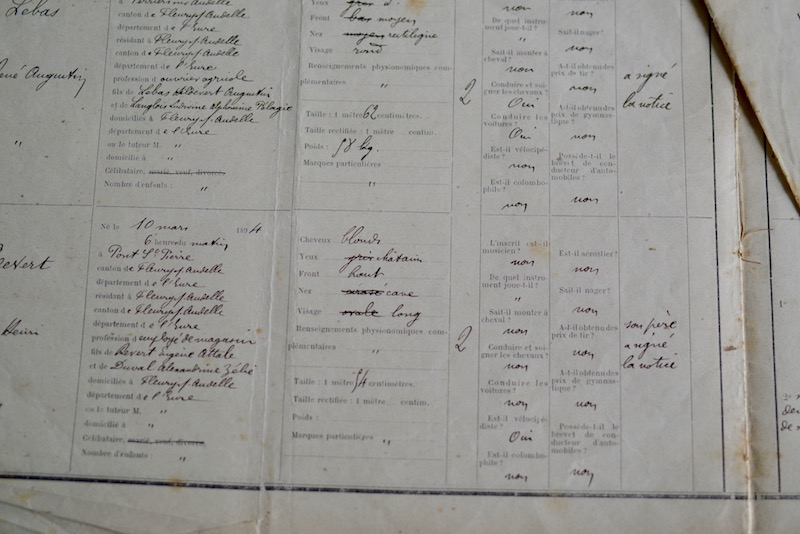 Lebas
René Augustin
"
canton de Fleury s/ Andelle
département de l'Eure
résidant à Fleury s/ Andelle
canton de Fleury s/ Andelle
département de l'Eure
profession d ouvrier agricole
fils de Lebas Augustin
et de Langlois Ludivine Alphonsine Pélagie
domiciliés à Fleury s/ Andelle
département de l'Eure
ou le tuteur M. "
domicilié à "
Célibataire, marié, veuf, divorcé.
Nombre d'enfants : "
Yeux
Front bas moyen
Nez moyen rectiligne
Visage rond
Renseignements physionomiques com-
plémentaires "
Taille : 1 mètre 62 centimètres.
Taille rectifiée : 1 mètre centim.
Poids : 58 kg.
Marques particulières
"
2
non
De quel instru-
ment joue-t-il ?
"
Sait-il monter à
cheval ?
non
Conduire et soi-
gner les chevaux ?
Oui
Conduire les
voitures ?
Oui
Est-il vélocipé-
diste ?
non
Est-il colombo-
phile ?
non
non
Sait-il nager ?
non
A-t-il obtenu des
prix de tir ?
non
A-t-il obtenu des
prix de gymnas-
tique ?
non
Possède-t-il le
brevet de con-
ducteur d'auto-
mobiles ?
non
a signé
la notice
Revert
Henri
Né le 10 mars 1894
6 heures du matin
à Pont St Pierre
canton de Fleury s/ Andelle
département de l'Eure
résidant à Fleury s/ Andelle
canton de Fleury s/ Andelle
département de l'Eure
profession d employé de magasin
fils de Revert Eugène Attale
et de Duval Alexandrine Zélie
domiciliés à Fleury s/ Andelle
département de l'Eure
ou le tuteur M. "
domicilié à "
Célibataire, marié, veuf, divorcé.
Nombre d'enfants : "
Cheveux blonds
Yeux gris châtain
Front haut
Nez cave
Visage ovale long
Renseignements physionomiques com-
plémentaires "
Taille : 1 mètre 54 centimètres.
Taille rectifiée : 1 mètre centim.
Poids :
Marques particulières "
2
L'inscrit est-il
musicien ?
non
De quel instru-
ment joue-t-il ?
"
Sait-il monter à
cheval ?
non
Conduire et soi-
gner les chevaux ?
non
Conduire les
voitures ?
non
Est-il vélocipé-
diste ?
Oui
Est-il colombo-
phile ?
non
Est-il aérostier ?
non
Sait-il nager ?
non
A-t-il obtenu des
prix de tir ?
non
A-t-il obtenu des
prix de gymnas-
tique ?
non
Possède-t-il le
brevet de con-
ducteur d'auto-
mobiles ?
non
son père
a signé
la notice